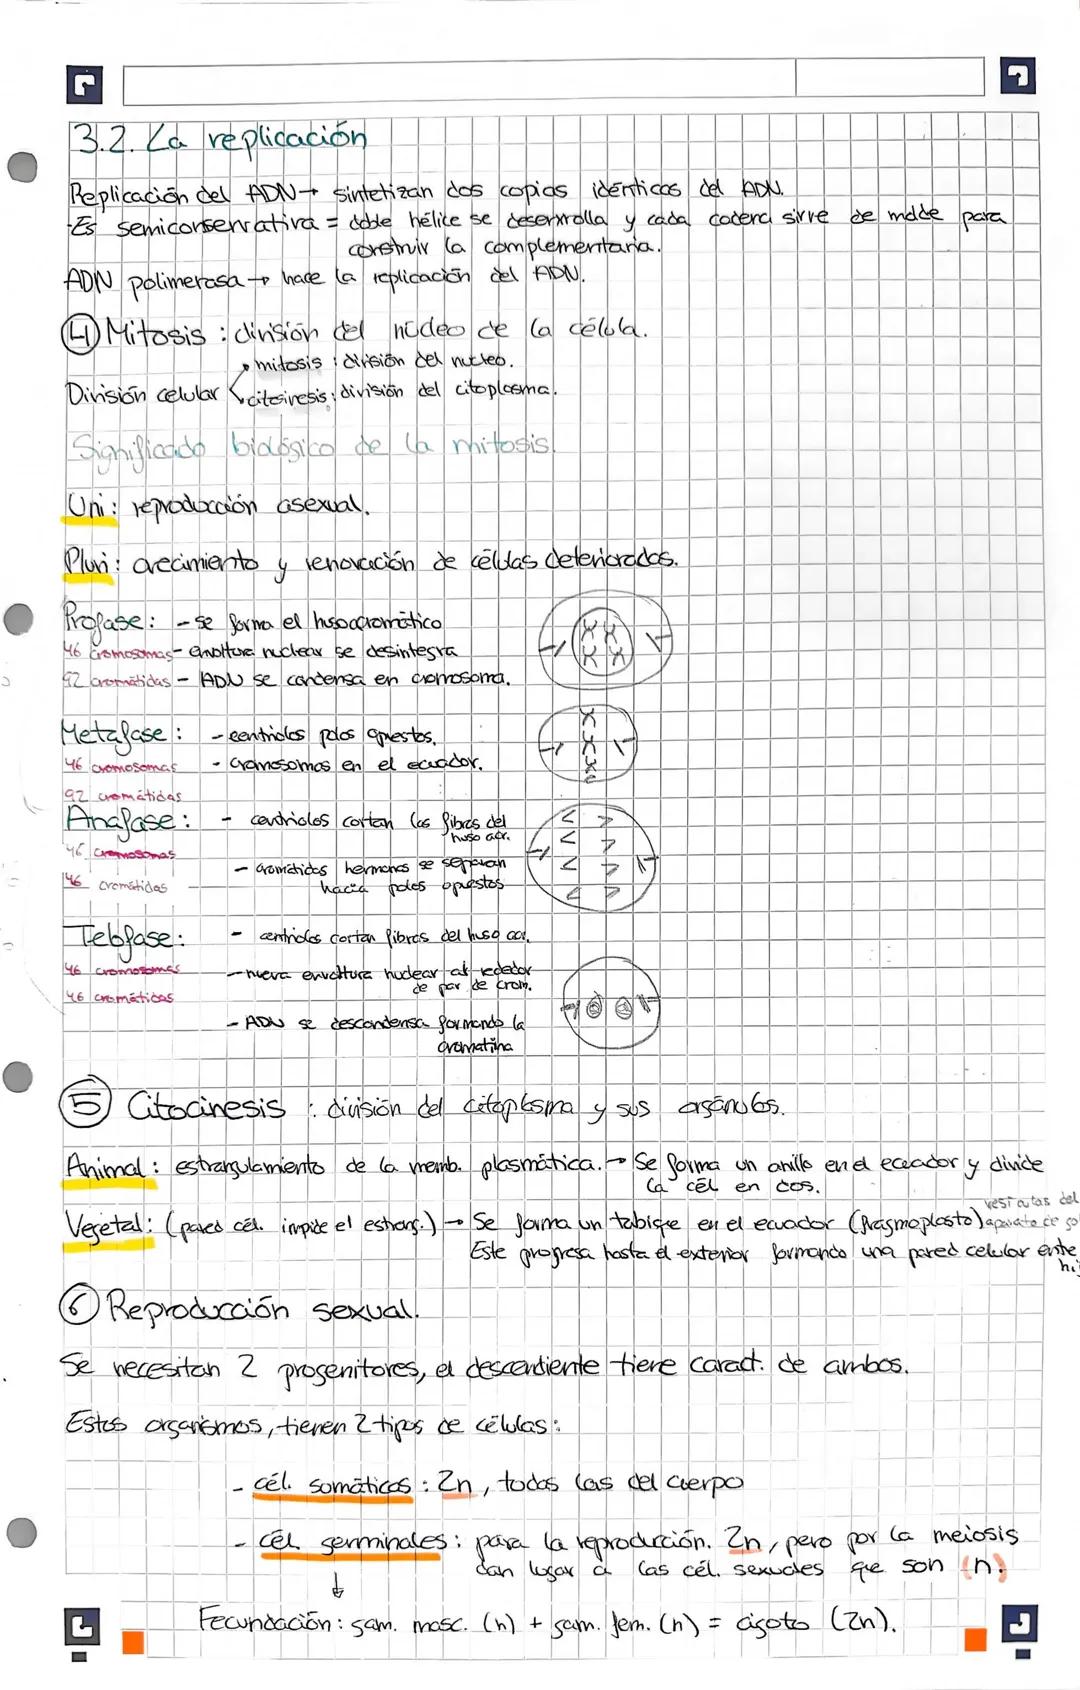 3.2. La replicación
Replicación del ADN → sintetizan dos copias idénticas del ADN.
Es semiconservativa = doble hélice se desenrrolla y cada cadena sirve de molde para
construir la complementaria.
ADN polimerasa → hace la replicación del ADN.
4 Mitosis : división del núcleo de la célula.
mitosis : división del nucleo.
División celular
citosinesis : división del citoplasma.
Significado biológico de la mitosis.
Uni : reproducción asexual.
Pluri : crecimiento y renovación de células deterioradas.
Profase : - se forma el huso acromático
46 cromosomas - envoltura nuclear se desintegra
92 cromátidas - ADN se condensa en cromosoma.
Metafase : - centriolos polos opuestos.
46 cromosomas - cromosomas en el ecuador.
92 cromátidas
Anafase : - centriolos cortan las fibras del
huso acr.
46 cromosomas
- cromátidas hermanas se separan
46 cromátidas hacia polos opuestos
Telofase : - centriolos cortan fibras del huso acr.
46 cromosomas - nueva envoltura nuclear al rededor
46 cromáticas de par de crom.
- ADN se descondensa formando la
cromatina
5 Citocinesis : división del citoplasma y sus orgánulos.
Animal : estrangulamiento de la memb. plasmática. → Se forma un anillo en el ecuador y divide
la cél en dos.
vesículas del
Vegetal : (pared cél. impide el estrang.) → Se forma un tabique en el ecuador (fragmoplasto) aparato de
Este progresa hasta el exterior formando una pared celular entre
6 Reproducción sexual.
Se necesitan 2 progenitores, el descendiente tiene caract. de ambos.
Estos organismos, tienen 2 tipos de células :
- cél. somáticas : 2n, todas las del cuerpo
- cél germinales : para la reproducción. 2n, pero por la meiosis
dan lugar a las cél. sexuales que son (n).
↓
Fecundación : gam. masc. (n) + gam. fem. (n) = cigoto (2n).